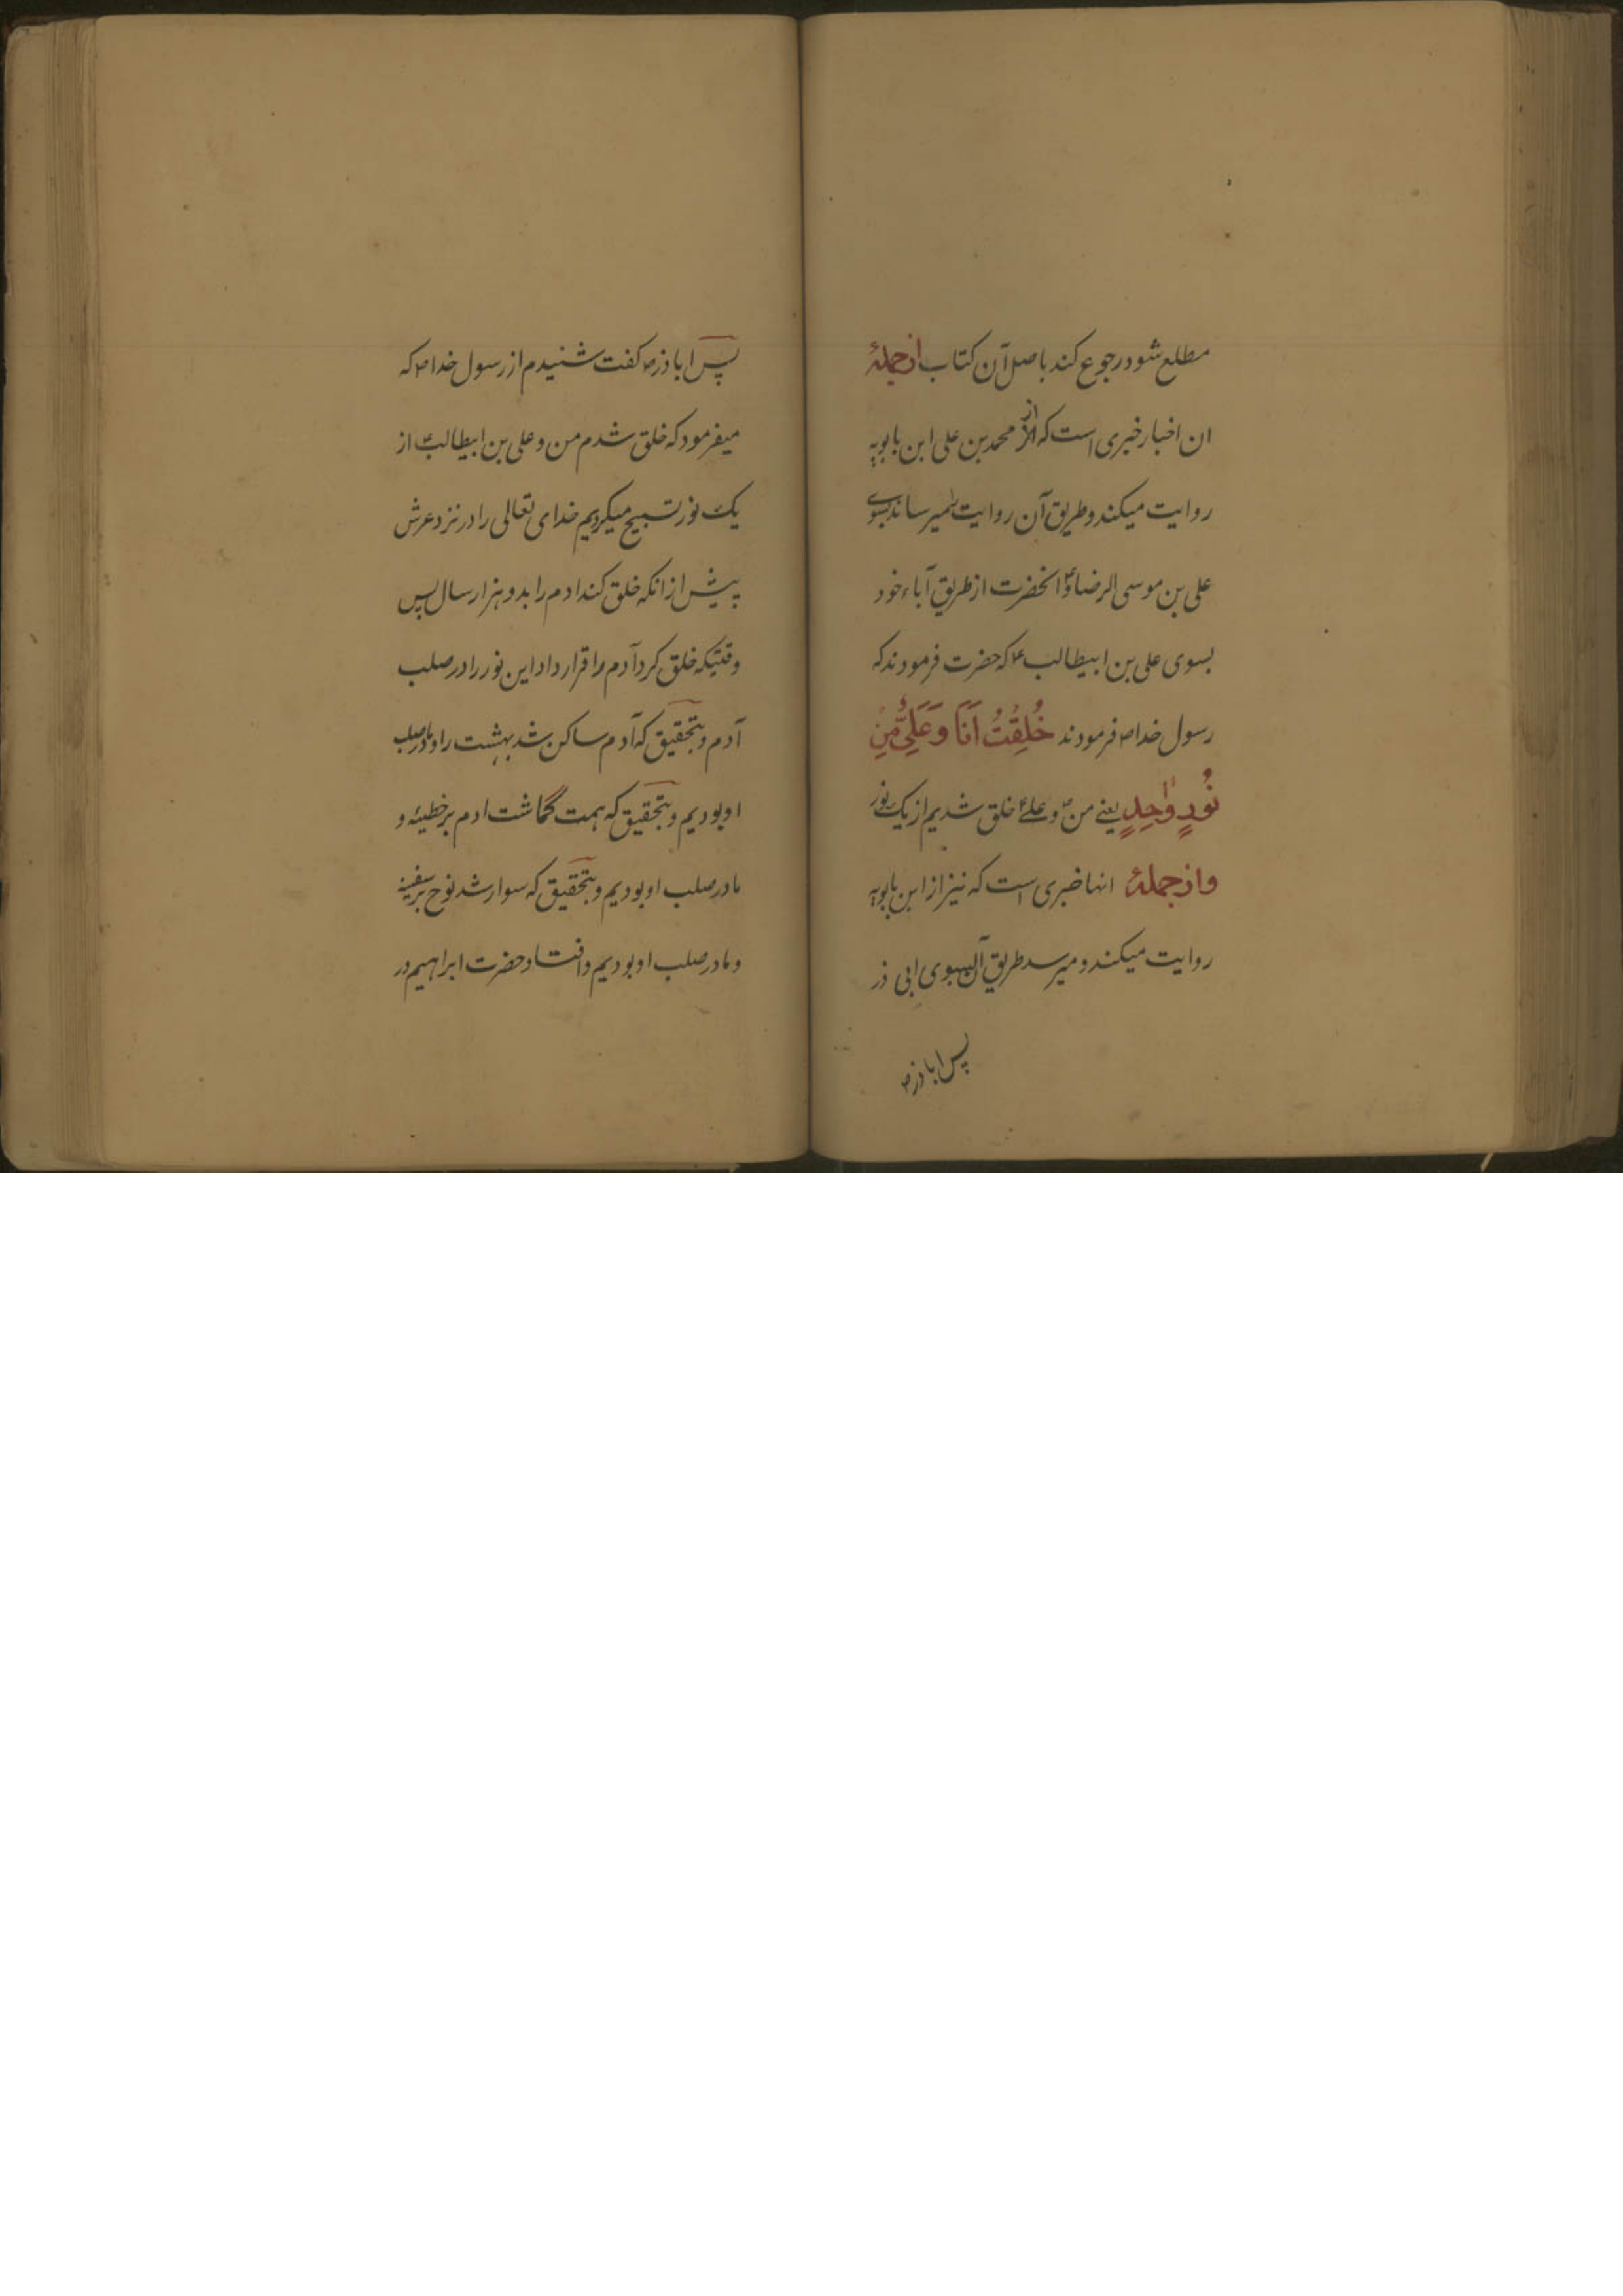 مطلع شود رجوع کند باصل آن کتاب از جملهٔ
ان اخبار خبری است که از محمد بن علی ابن بابویه
روایت میکند و طریق آن روایت میرساند بسوی
علی بن موسی الرضا و انحضرت از طریق آباء خود
بسوی علی بن ابیطالب ع که حضرت فرمودند که
رسول خدا ص فرمودند خُلِقْتُ اَنَا وَ عَلِیٌّ مِنْ
نُورٍ وٰاحِدٍ یعنے من و علے خلق شدیم از یک نور
و از جملهٔ انها خبری است که نیز از ابن بابویه
روایت میکند و میرسد طریق آن بسوی ابی ذر
پس اباذر
پس اباذر گفت شنیدم از رسول خدا ص که
میفرمود که خلق شدم من و علی بن ابیطالب ع از
یک نور تسبیح میکردیم خدای تعالی را در نزد عرش
پیش از انکه خلق کند ادم را بدو هزار سال پس
وقتیکه خلق کرد آدم را قرار داد این نور را در صلب
آدم و بتحقیق که آدم ساکن شد بهشت را و ما در صلب
او بودیم و بتحقیق که همت گماشت ادم بر خطیئه و
ما در صلب او بودیم و بتحقیق که سوار شد نوح بر سفینه
و ما در صلب او بودیم و افتاد حضرت ابراهیم در